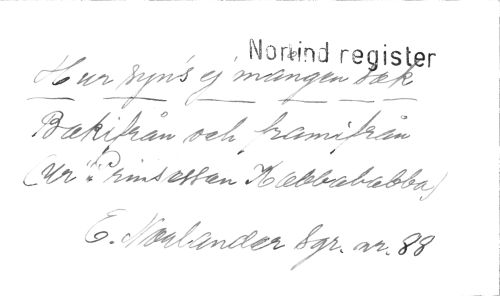 Norlind register
Hur syn's ej mången sæk
Bækifrån och framifrån
(ur "Prinsessan Habbababba)
E. Norlander Sgr. nr. 88